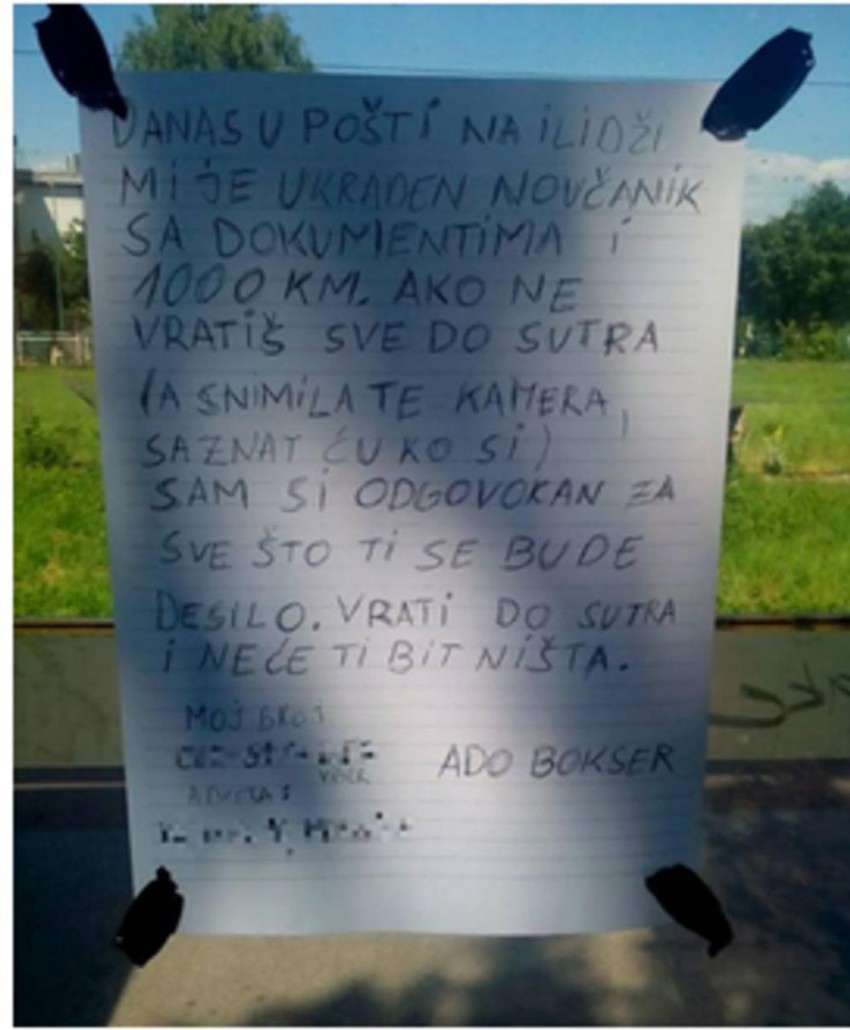 DANAS U POŠTI NA ILIDŽI
MI JE UKRADEN NOVČANIK
SA DOKUMENTIMA I
1000 KM. AKO NE
VRATIŠ SVE DO SUTRA
(A SNIMILA TE KAMERA,
SAZNAT ĆU KO SI)
SAM SI ODGOVORAN ZA
SVE ŠTO TI SE BUDE
DESILO. VRATI DO SUTRA
I NEĆE TI BIT NIŠTA.
MOJ BROJ
VIBER
ADRESA:
ADO BOKSER